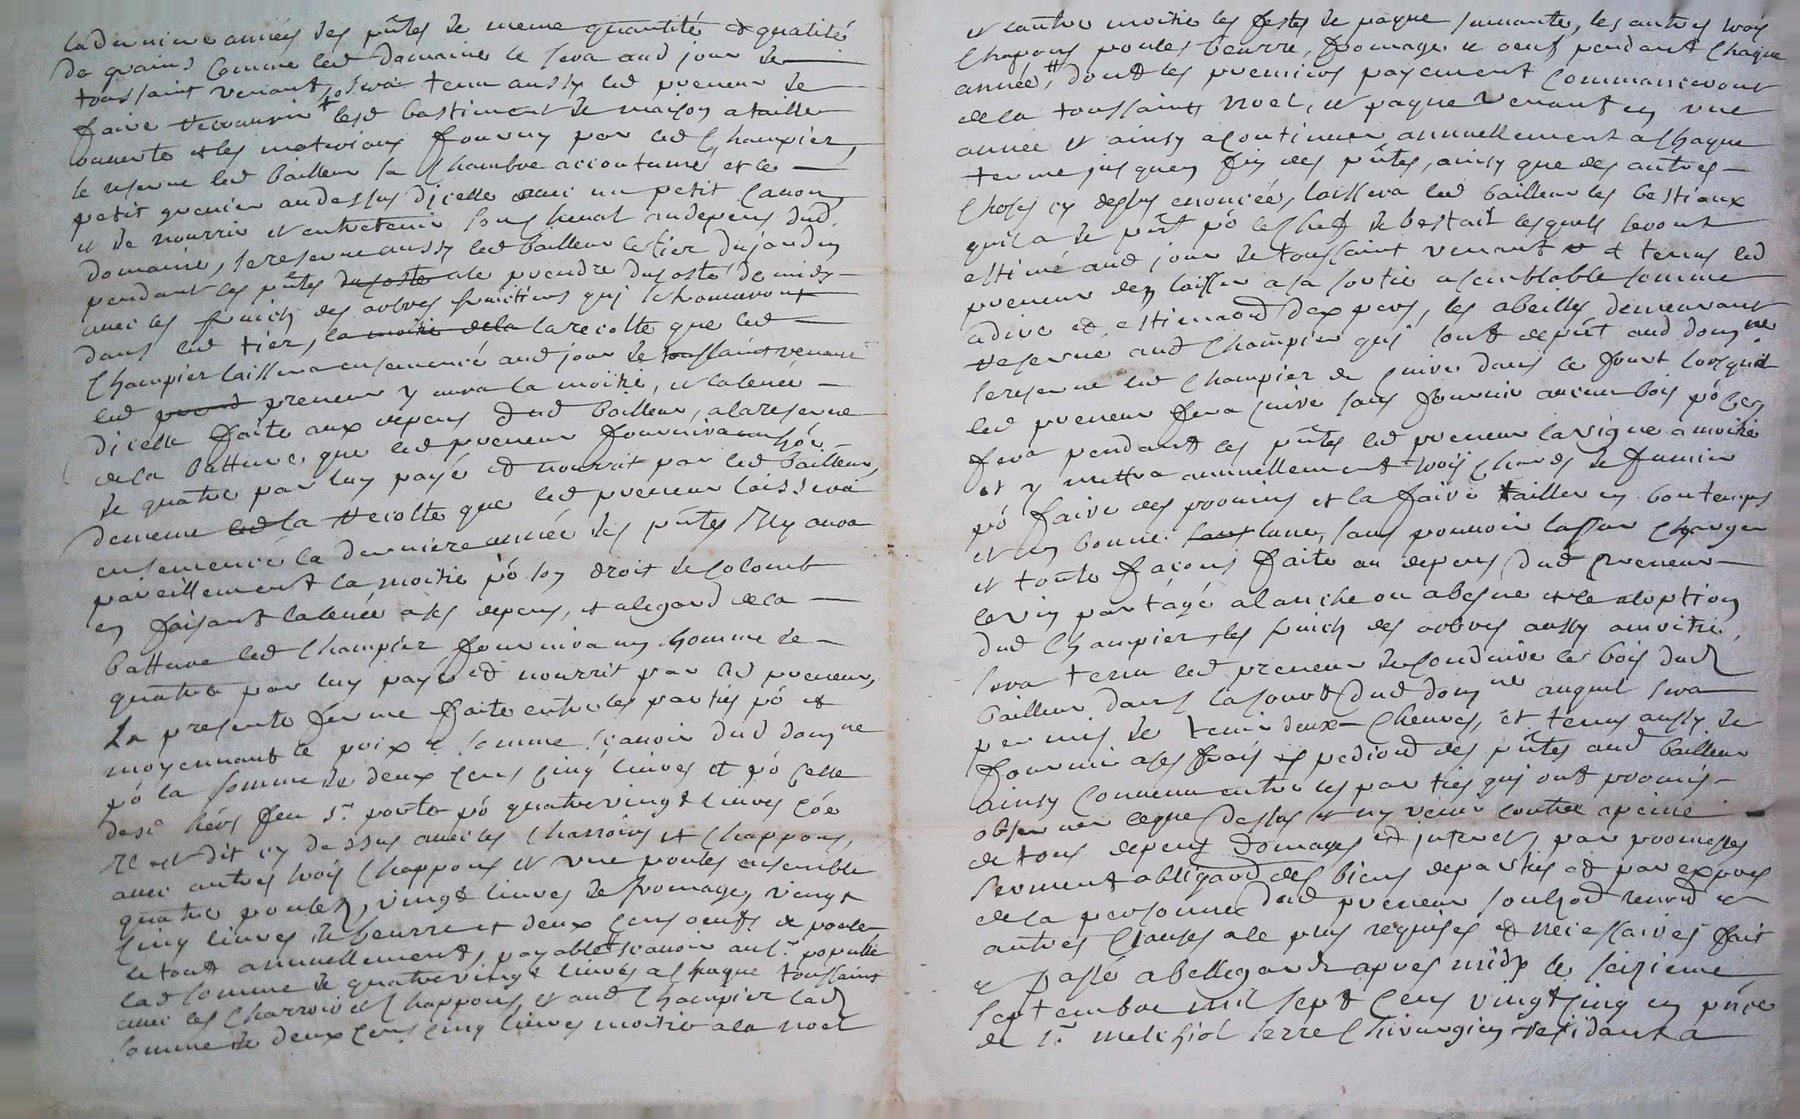 la derniere année des pñtes de meme quantité et qualité
de grains comme led domaine le sera aud jour de
toussaint venant, sera tenu aussy led preneur de
faire recouvrir lesd bastiment de maison a taille
ouverte et les materiaux fourny par led Champier,
se reserve led bailleur la Chambre accoutumé, et le
petit grenier au dessus dicelle avec un petit
et de nourrir et entretenir son cheval au depens dud
domaine, se reserve aussy led bailleur le tier du jardin
pendant les pñtes du costé a le prendre du costé de midy
avec les fruich des arbres fruitiers qui se trouveront
dans led tier, la moitié de la la recolte que led
Champier laissera ensemencé aud jour de toussaint venant
led preneur y aura la moitié, et la levée
dicelle faite aux depens dud bailleur, a la reserve
de la batture que led preneur fournira un hōe
de quatre par luy payé et nourrit par led bailleur,
de meme led la recolte que led preneur laissera
ensemencé la derniere année des pñtes il y aura
pareillement la moitié pō son droit de colomb
en faisant la levée a ses depens, et a legard de la
batture led Champier fournira un homme de
quatre par luy payé et nourrit par led preneur,
La presente ferme faite entre les parties pō et
moyennant le prix et somme sçavoir dud domne
pō la somme de deux cens cinq livres et pō celle
des hērs feu sr porte pō quatre vingt livres cōe
il est dit cy dessus avec les charrois et chappons,
avec autres trois chappons et une poules ensemble
quatre poules, vingt livres de fromage, vingt
cinq livres de beurre et deux cens oeufs de poule,
le tout annuellement, payable sçavoir au sr
lad somme de quatre vingt livres a chaque toussaint
avec les charrois et chappons, et aud Champier lad
somme de deux cens cinq livres moitié a la noel
et l'autre moitié les festes de paque suivante, les autres trois
chapons poules beurre, fromage et oeufs pendant chaque
année, dont les premiers payement commanceront
de la toussaint noel, et paque venant en une
année et ainsy a continuer annuellement a chaque
terme jusques fin des pñtes, ainsy que des autres
choses cy dessus enoncée, laissera led bailleur les bestiaux
quil a de pñt pō le chef de bestail lesquels seront
estimé aud jour de toussaint venant et tenus led
preneur den laisser a sa sortie a semblable somme
a dire et estimaōn dexpers, les abeilles demeurant
reservé aud Champier qui sont de pñt aud domne
se reserve led Champier de cuire dans le fourt lorsque
led preneur fera cuire sans fournir aucun bois pō ce,
fera pendant les pñtes led preneur la vigne a moitié
et y mettra annuellement trois chards de fumier
pō faire des provins et la faire tailler en bon temps
et en bonne lune, sans pouvoir laisser charger
et toute façons faite au depens dud preneur
le vin partagé a l anche ou a besne et le a loption
dud Champier, les fruich des arbres aussy a moitié,
sera tenu led preneur de conduire le bois dud
bailleur dans la court dud domne auquel sera
permis de tenir deux chevres, et tenu aussy de
fournir a ses frais expediōn des pñtes aud bailleur
ainsy convenu entre les parties qui ont promis
observer ce que dessus et ny venir contre a peine
de tous depens domages et interets, par promesses
serment obligaōn des biens de parties et par expres
de la personne dud preneur
autres clauses a le plus requises et necessaires fait
et passé a bellegarde apres midy le seizieme
septembre mil sept cens vingt cinq en pñce
de sr melchiol serre chirurgien residant a